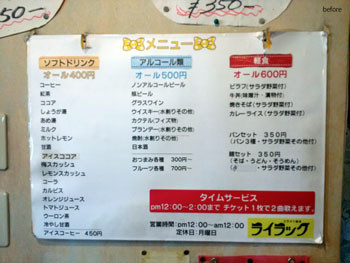 before
350-
¥350-
メニュー
ソフトドリンク
オール400円
コーヒー
紅茶
ココア
しょうが湯
あめ湯
ミルク
ホットレモン
甘酒
アイスココア
梅スカッシュ
レモンスカッシュ
コーラ
カルピス
オレンジジュース
トマトジュース
ウーロン茶
冷やし甘酒
アイスコーヒー 450円
アルコール類
オール500円
ノンアルコールビール
缶ビール
グラスワイン
ウイスキー(水割りその他)
カクテル(フィズ物)
ブランデー(水割りその他)
焼酎(水割りその他)
日本酒
おつまみ各種 300円〜
フルーツ各種 700円〜
軽食
オール600円
ピラフ(サラダ野菜付)
牛丼(味噌汁・漬物付)
焼きそば(サラダ野菜付)
カレーライス(サラダ野菜付)
パンセット 350円
(パン3種・サラダ野菜その他付)
麺セット 350円
(そば・うどん・そうめん)
サラダ野菜その他付
タイムサービス
pm12:00〜2:00まで チケット1枚で2曲歌えます。
営業時間:pm12:00〜am12:00
定休日:月曜日
ライラック